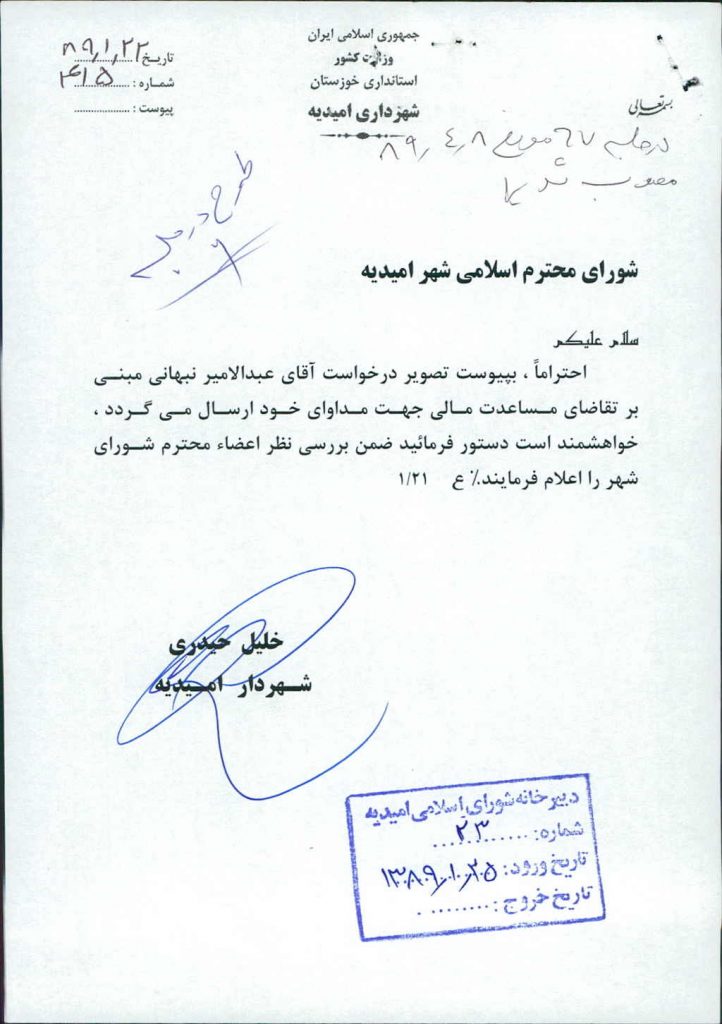 جمهوری اسلامی ایران
وزارت کشور
استانداری خوزستان
شهرداری امیدیه
تاریخ ۸۹٫۱٫۲۲
شماره : ۴۱۵
پیوست : ..................
بسمه تعالی
در جلسه ۶۷ مورخ ۸۹٫۴٫۸
مصوب شد
طرح در
شورای محترم اسلامی شهر امیدیه
سلام علیکم
احتراماً ، بپیوست تصویر درخواست آقای عبدالامیر نبهانی مبنی
بر تقاضای مساعدت مالی جهت مداوای خود ارسال می گردد ،
خواهشمند است دستور فرمائید ضمن بررسی نظر اعضاء محترم شورای
شهر را اعلام فرمایند٪ ع ۱/۲۱
خلیل حیدری
شهردار امیدیه
دبیرخانه شورای اسلامی امیدیه
شماره: ۲۳
تاریخ ورود: ۱۳۸۹٫۰۱٫۲۵
تاریخ خروج: ..........